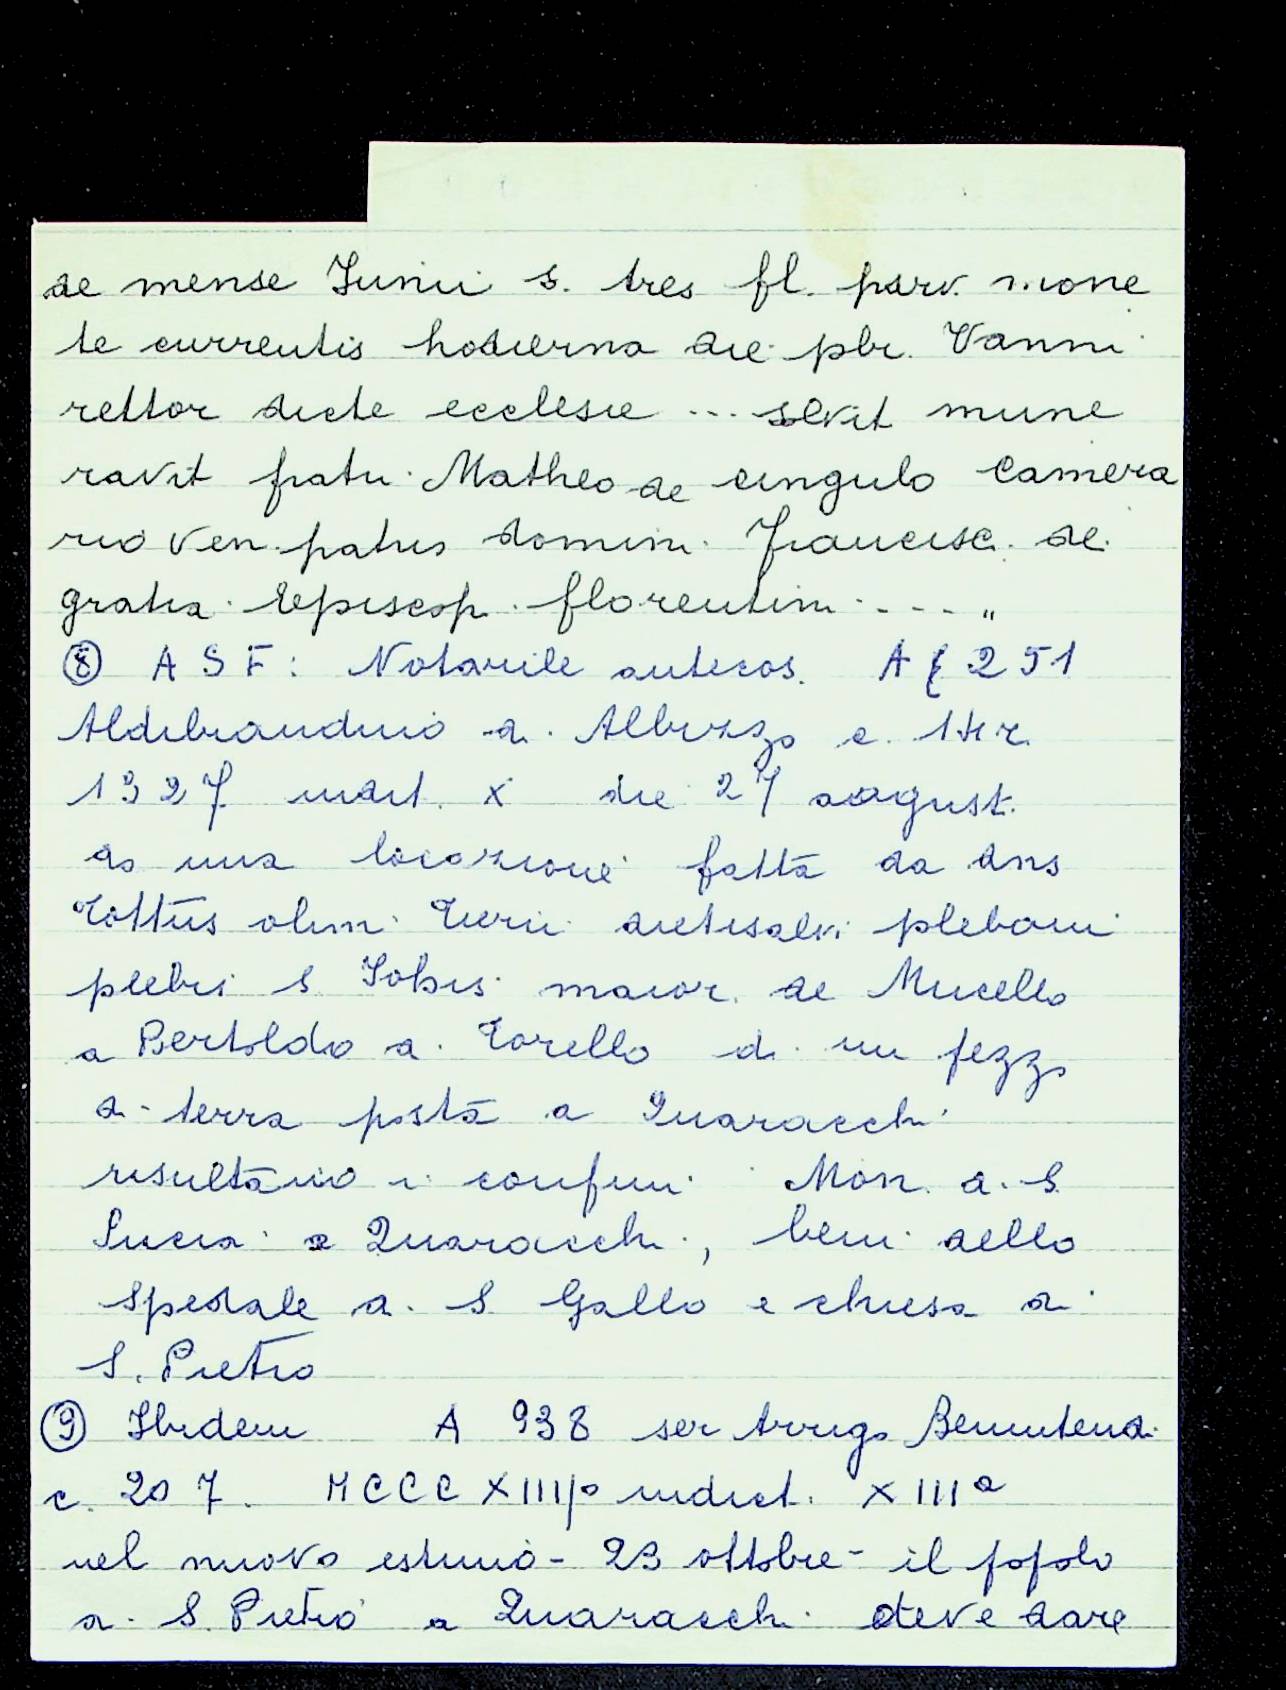 de mense Junii s. tres fl. parv. mone
te currentis hodierna die pbr. Vanni
rettor dicte ecclesie ... solvit nume
ravit fratri Matheo de cingulo camera
rio ven. patris domini Francisc. dei
gratia Episcop. florentini ----"
⑧ A S F: Notarile antecos. A 251
Aldibrandino di Albizzo c. 14r
1327 indit. X die 27 august.
da una locazione fatta da dns
Tottus olim Turii dietisalvi plebani
plebis S Johis maior. de Mucello
a Bertoldo di Torello di un pezzo
di terra posta a Quaracchi
risultano i confini Mon. di S.
Lucia a Quaracchi, beni dello
Spedale di S. Gallo e chiesa di
S. Pietro
⑨ Ibidem A 938 ser Arrigo Benintendi
c. 207. MCCC XIIII° indict. XIIIª
nel nuovo estimo - 23 ottobre - il popolo
di S. Pietro a Quaracchi deve dare